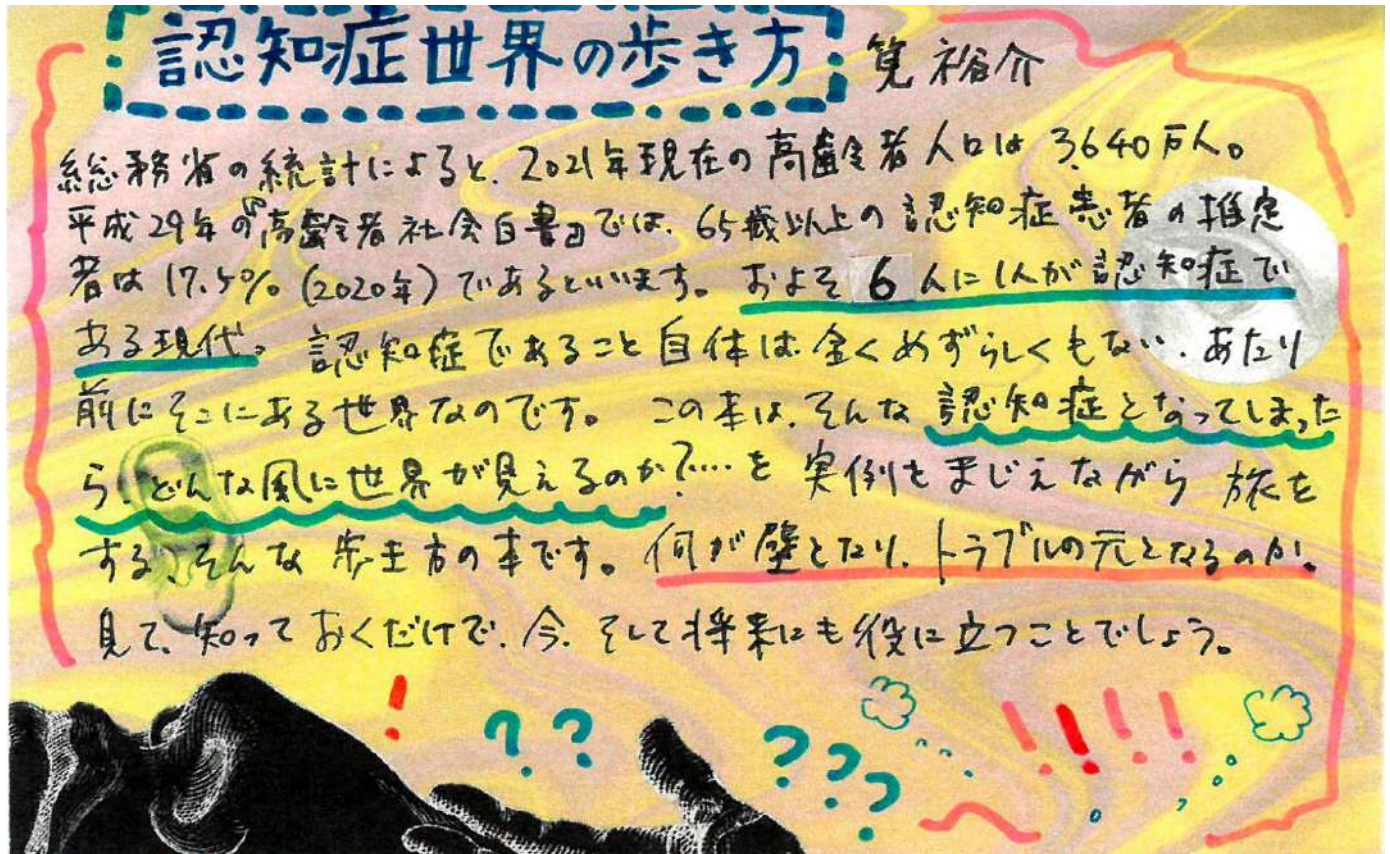 認知症世界の歩き方 筧裕介
総務省の統計によると、2021年現在の高齢者人口は3,640万人。
平成29年の『高齢者社会白書』では、65歳以上の認知症患者の推定
者は17.5%(2020年)であるといいます。およそ6人に1人が認知症で
ある現代。認知症であること自体は全くめずらしくもない、あたり
前にそこにある世界なのです。この本は、そんな認知症となってしまった
ら、どんな風に世界が見えるのか?…を実例をまじえながら旅を
する、そんな歩き方の本です。何が壁となり、トラブルの元となるのか。
見て、知っておくだけで、今、そして将来にも役に立つことでしょう。
! ?? ??? !!!!